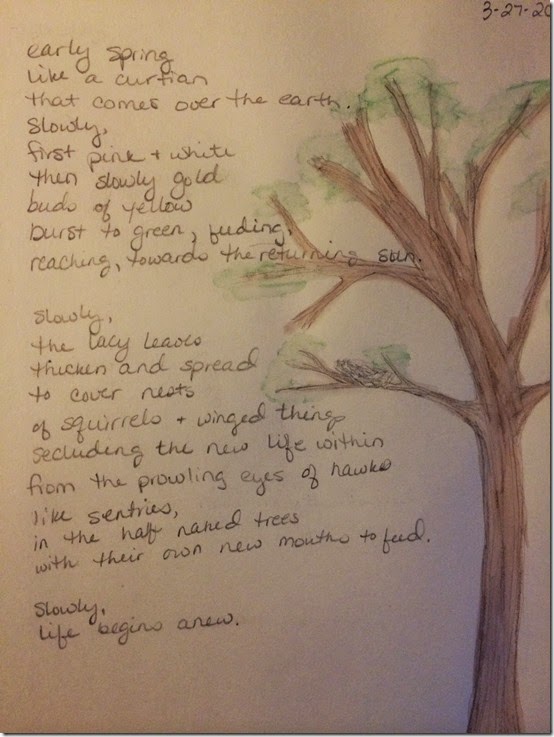 3-27-20
early spring
like a curtian
that comes over the earth.
Slowly,
first pink + white
then slowly gold
buds of yellow
burst to green, feeding,
reaching, towards the returning sun.
slowly,
the lacy leaves
thicken and spread
to cover nests
of squirrels + winged things
secluding the new life within
from the prowling eyes of hawks
like sentries,
in the half naked trees
with their own new mouths to feed.
Slowly,
life begins anew.